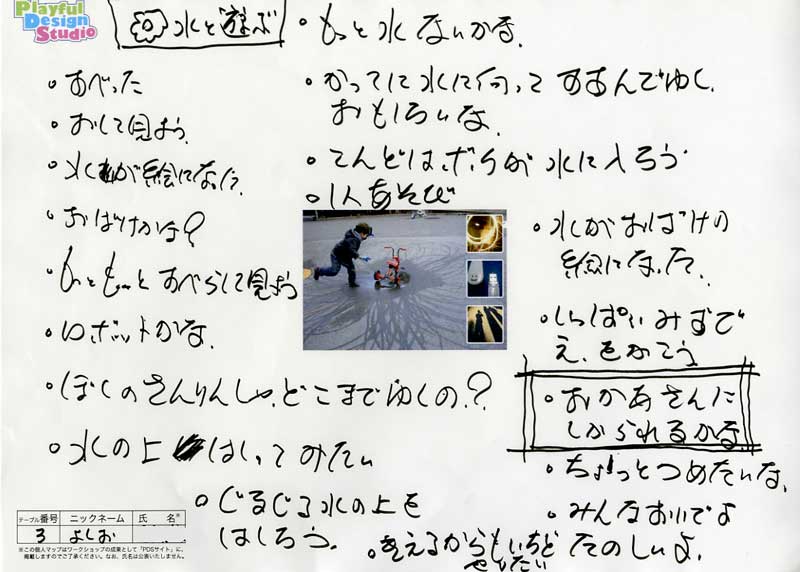 Playful
Design
Studio
水と遊ぶ
・もっと水ないかな。
・すべった
・おして見よう。
・水が絵になった。
・おばけかな?
・もっともっとすべらして見よう
・ロボットかな。
・ぼくのさんりんしゃ、どこまでゆくの。?
・水の上はしってみたい
・ぐるぐる水の上を
はしろう。
・かってに水に向ってすすんでゆく。
おもしろいな。
・こんどは、ボクが水に入ろう
・1人あそび
・水がおばけの
絵になった。
・いっぱいみずで
え、をかこう
・おかあさんに
しかられるかな
・ちょっとつめたいな、
・みんなおいでよ
たのしいよ。
・きえるからもいちど
やりたい
テーブル番号 ニックネーム 氏 名※
3 よしお
※この個人マップはワークショップの成果として「PDSサイト」に、
掲載しますのでご了承ください。なお、氏名は公表いたしません。